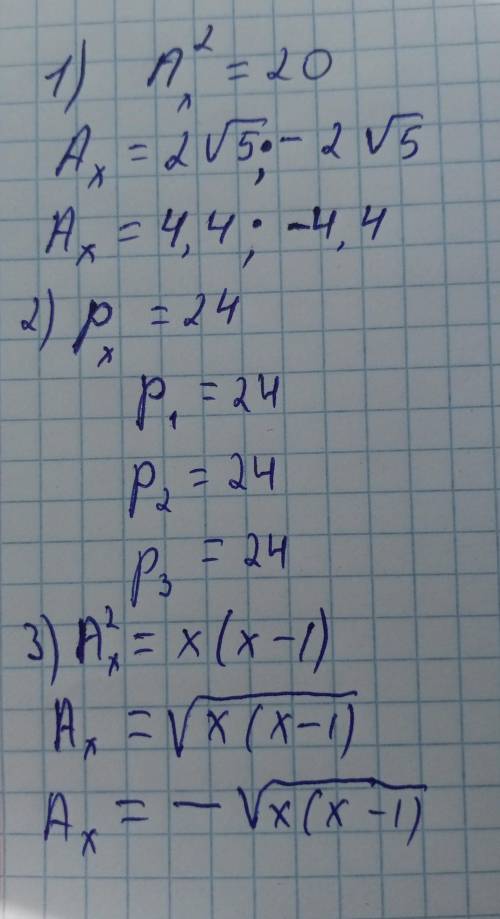 1) Aₓ² = 20
Aₓ = 2√5; - 2√5
Aₓ = 4,4; -4,4
2) Pₓ = 24
P₁ = 24
P₂ = 24
P₃ = 24
3) Aₓ² = x(x-1)
Aₓ = √x(x-1)
Aₓ = - √x(x-1)